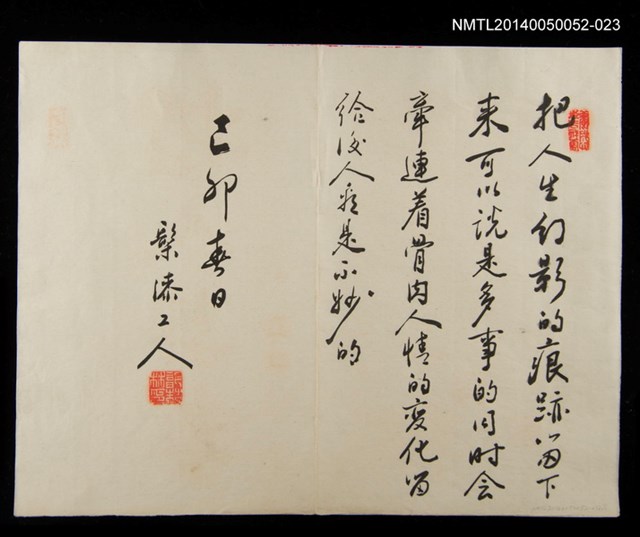 NMTL20140050052-023
把人生幻影的痕跡留下
来可以说是多事的同时会
牽連着骨肉人情的变化留
给後人看是不妙的
己卯春日
髹漆工人